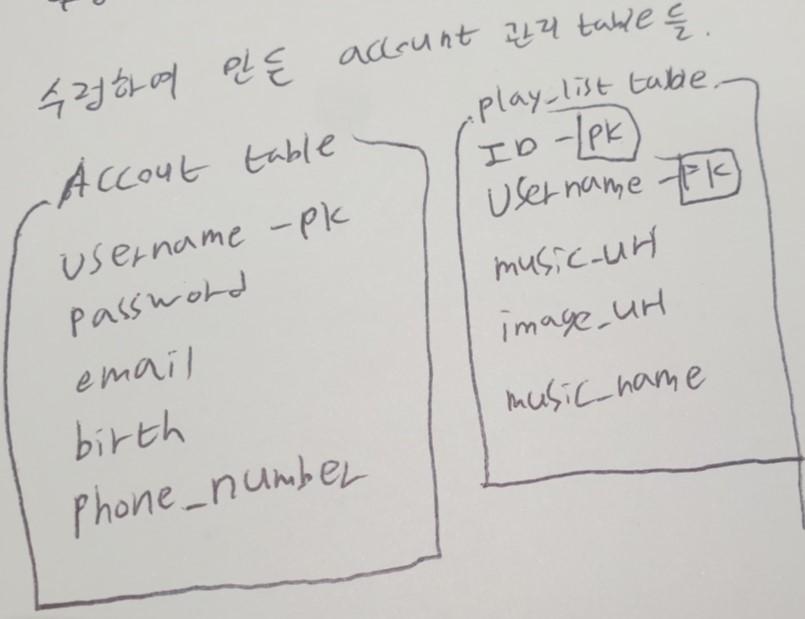 수정하여 만든 account 관리 table들.
Accout table
username - pk
password
email
birth
phone_number
play_list table
ID - PK
Username - FK
music_url
image_url
music_name